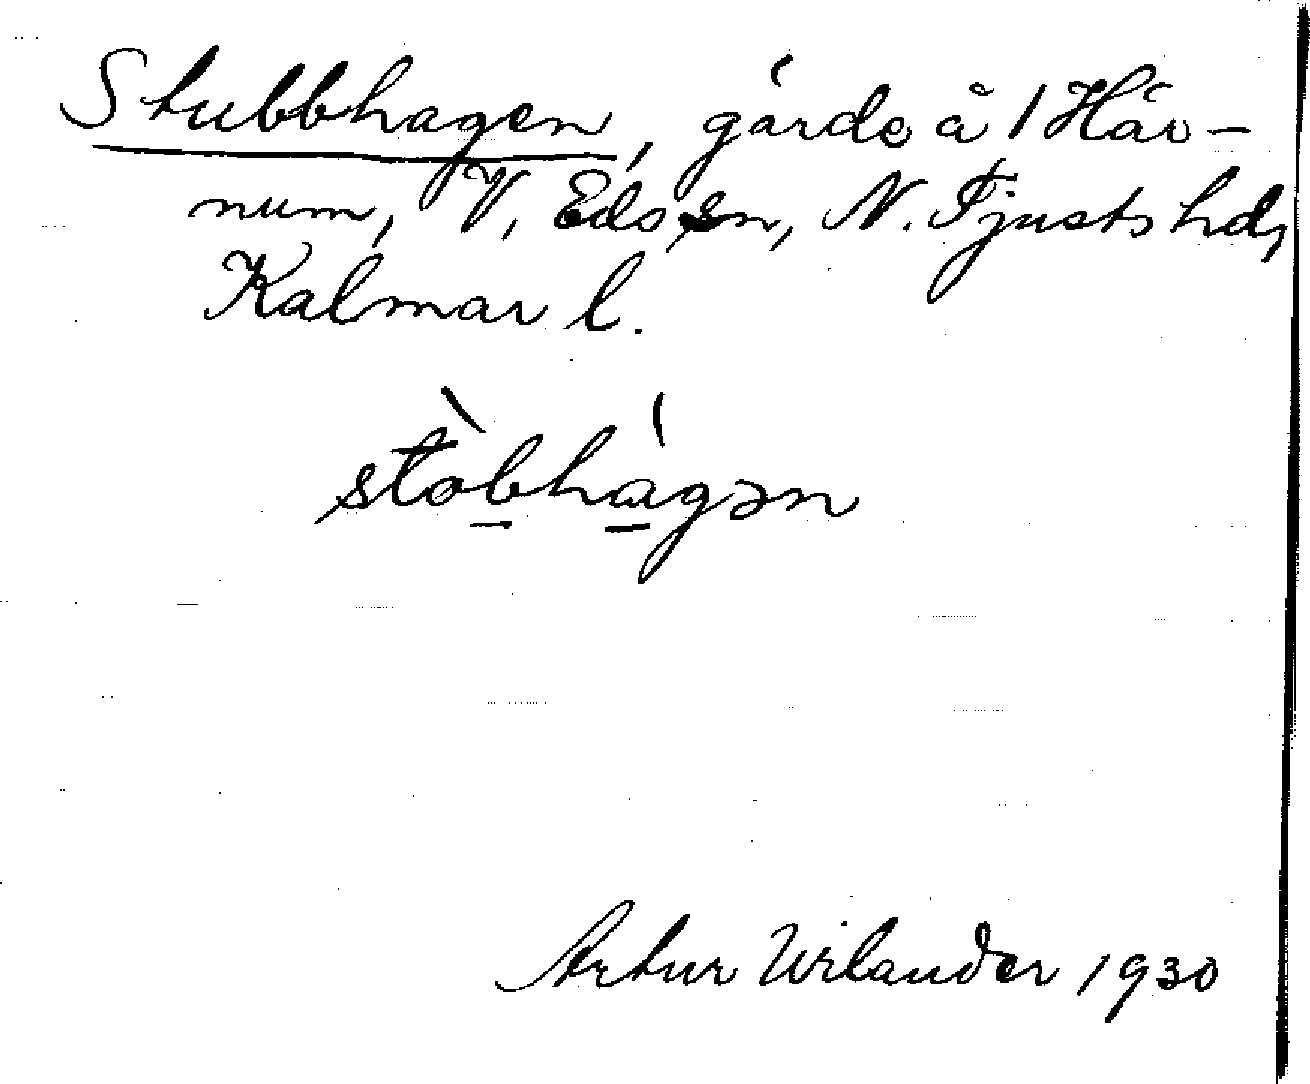 Stubbhagen, gärde å 1 Här-
num, V. Eds sn, N. Tjusts hd,
Kalmar l.
stòbhágən
Artur Wilander 1930